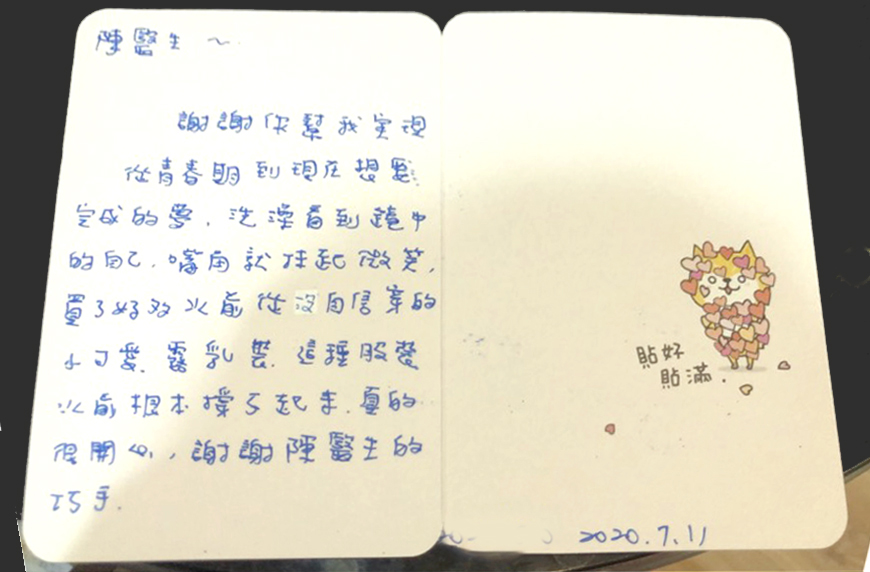 陳醫生～
謝謝你幫我实現
從青春期到現在想要
完成的夢，洗澡看到鏡中
的自己，嘴角就挂起微笑，
買了好多以前從沒自信穿的
小可愛、露乳裝，這種服裝
以前根本撐不起來，真的
很開心，謝謝陳醫生的
巧手。
貼好
貼滿．
2020.7.11